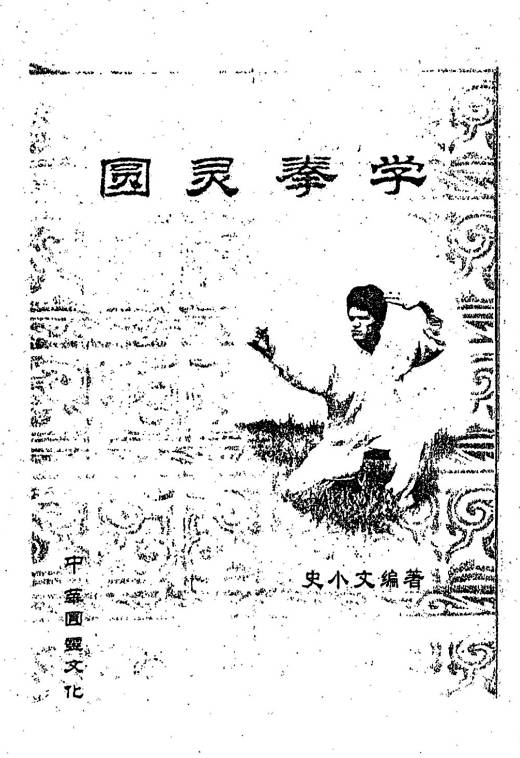 圆灵拳学
史小文编著
中华圓靈文化